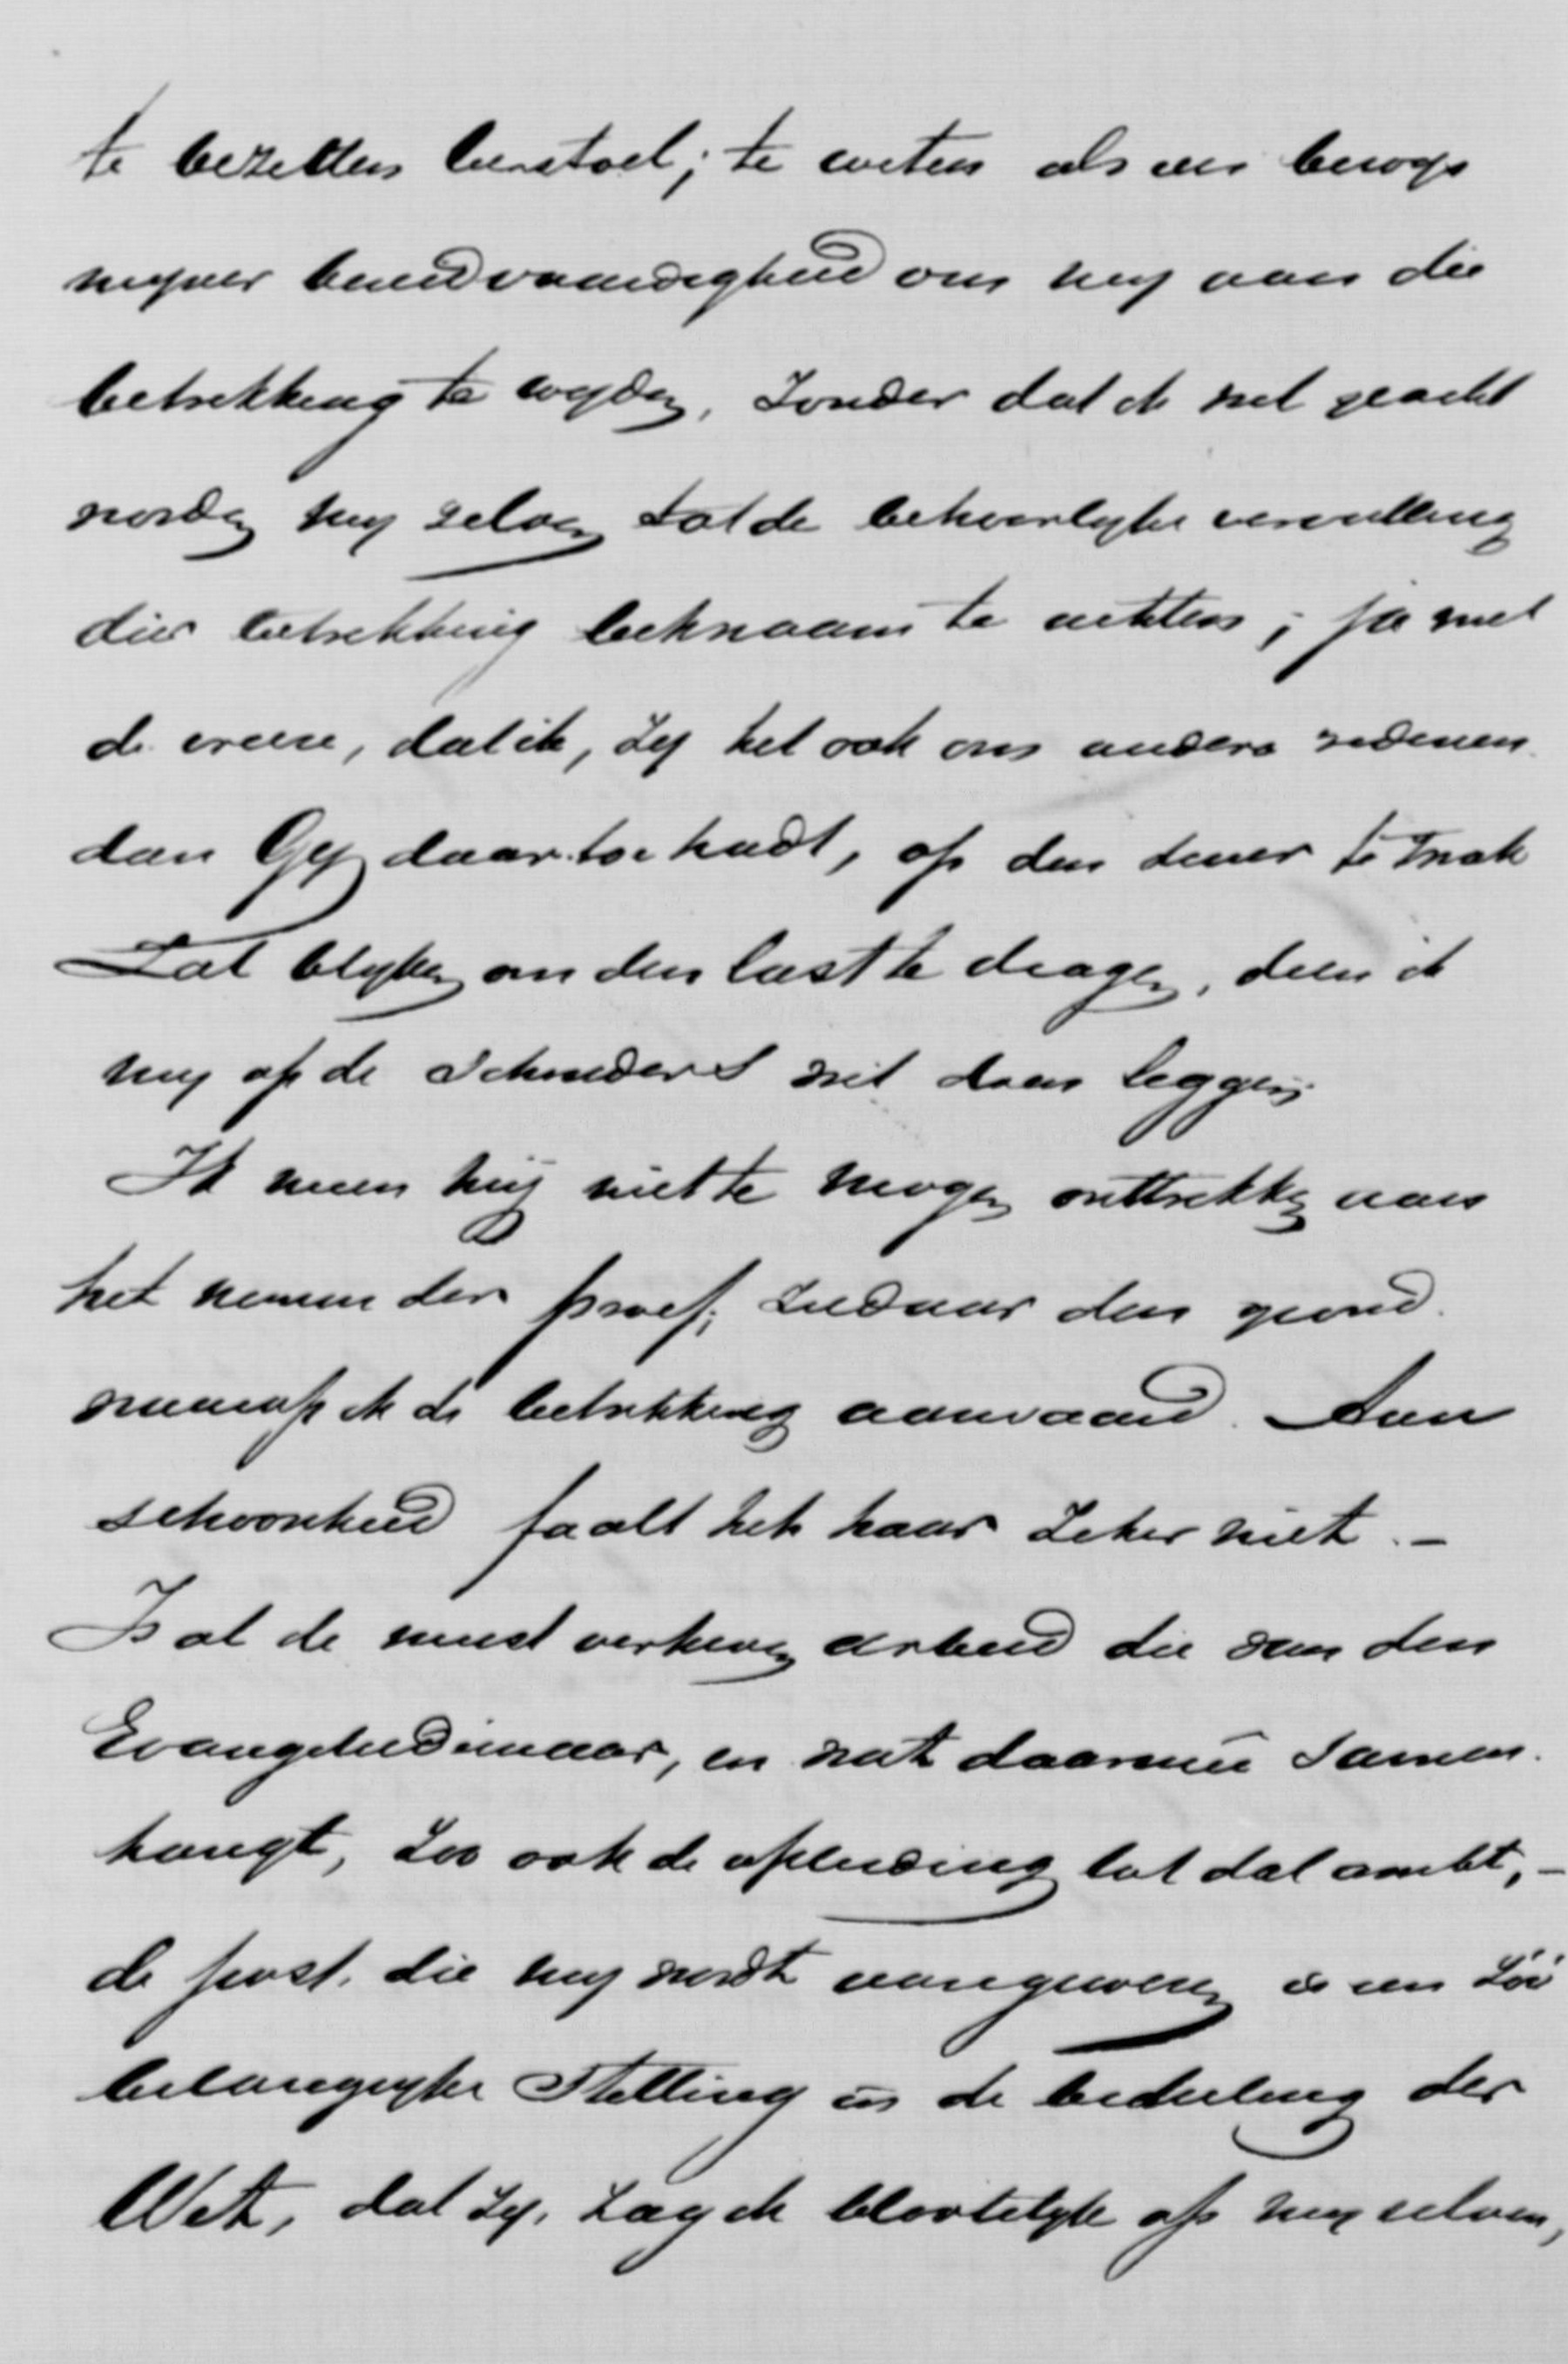 te bezetten leerstoel; te weten als een bewys
myner bereidvaardigheid om my aan die
betrekking te wyden, zonder dat ik wel geacht
worde my zelven tot de behoorlyke vervulling
dier betrekking bekwaam te achten; ja met
de vreese, dat ik, zy het ook om andere redenen
dan Gy daartoe hadt, op den duur te zwak
zal blyken om den last te dragen, dien ik
my op de schouders wil doen leggen.
Ik meen my niet te mogen onttrekken aan
het nemen der proef; ziedaar den grond
waarop ik de betrekking aanvaard. Aan
schoonheid faalt het haar zeker niet. -
Is al de meest verheven arbeid die van den
Evangeliedienaar, en wat daarmee samen
hangt, zoo ook de opleiding tot dat ambt, -
de post, die my wordt aangewezen is een zóó
belangryke stelling in de bedeeling der
Wet, dat zy, zag ik blootelyk op my zelven,